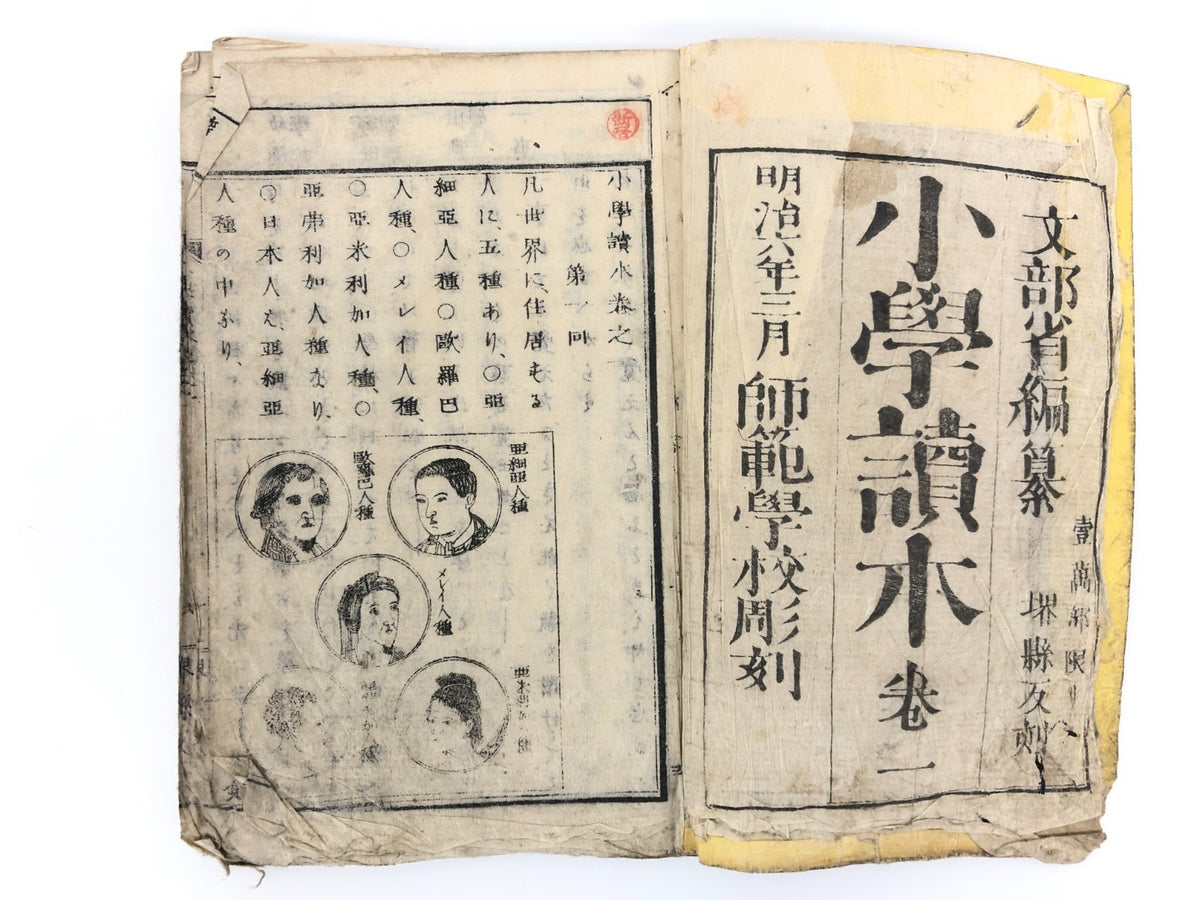 文部省編纂
壹萬部限リ
堺縣反刻
小學讀本 卷一
明治六年三月 師範學校彫刻
小學讀本卷之一
第一回
凡世界に、住居する
人に、五種あり、○亞
細亞人種○歐羅巴
人種、○メレイ人種、
○亞米利加人種、○
亞弗利加人種なり、
○日本人は、亞細亞
人種の中なり、
亞細亞人種
歐羅巴人種
メレイ人種